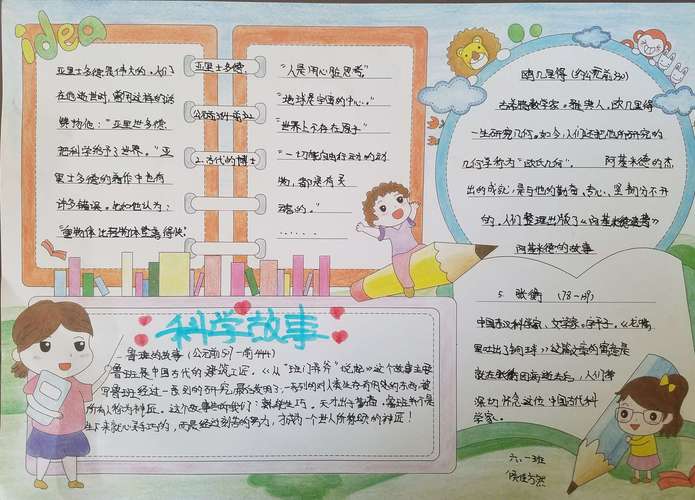 idea
亚里士多德是伟大的。人们
在他逝世时,曾用这样的话
赞扬他:“亚里世多德
把科学给予了世界。”亚
里士多德的著作中也有
许多错误。比如他认为:
“重物体比轻物体坠落得快”
亚里士多德.
公元前384-前322
2.古代的博士
“人是用心脏思考”
“地球是宇宙的中心。”
“世界上不存在原子”
“一切能自行运动的动
物,都没有灵
......
欧几里得
古希腊数学家。雅典人,欧几里得
一生研究几何。如今,人们还把他所研究的
几何学称为“欧氏几何”。 阿基米德的杰
出的成就,是与他的勤奋、专心、 分不开
的。人们整理出版了《阿基米德遗著》
阿基米德的故事
科学故事
一.鲁班的故事(公元前507-前444)
鲁班是中国古代的建筑工匠。《从“班门弄斧”说起》这个故事主要
写鲁班经过一系列的研究,最后发明了一系列的对人类生存有用的东西,被
所有人称为神匠。这个故事告诉我们:熟能生巧。天才出于勤奋,鲁班不是
生下来就心灵手巧的,而是经过刻苦的努力,才成为一个世人所称颂的神匠!
5.张衡 (78-139)
中国东汉科学家、文学家。字平子。《龙嘴
里吐出了铜球》这篇文章的寓意是
就在张衡因病逝去后,人们
深切怀念这位中国古代科
学家。
六、一班